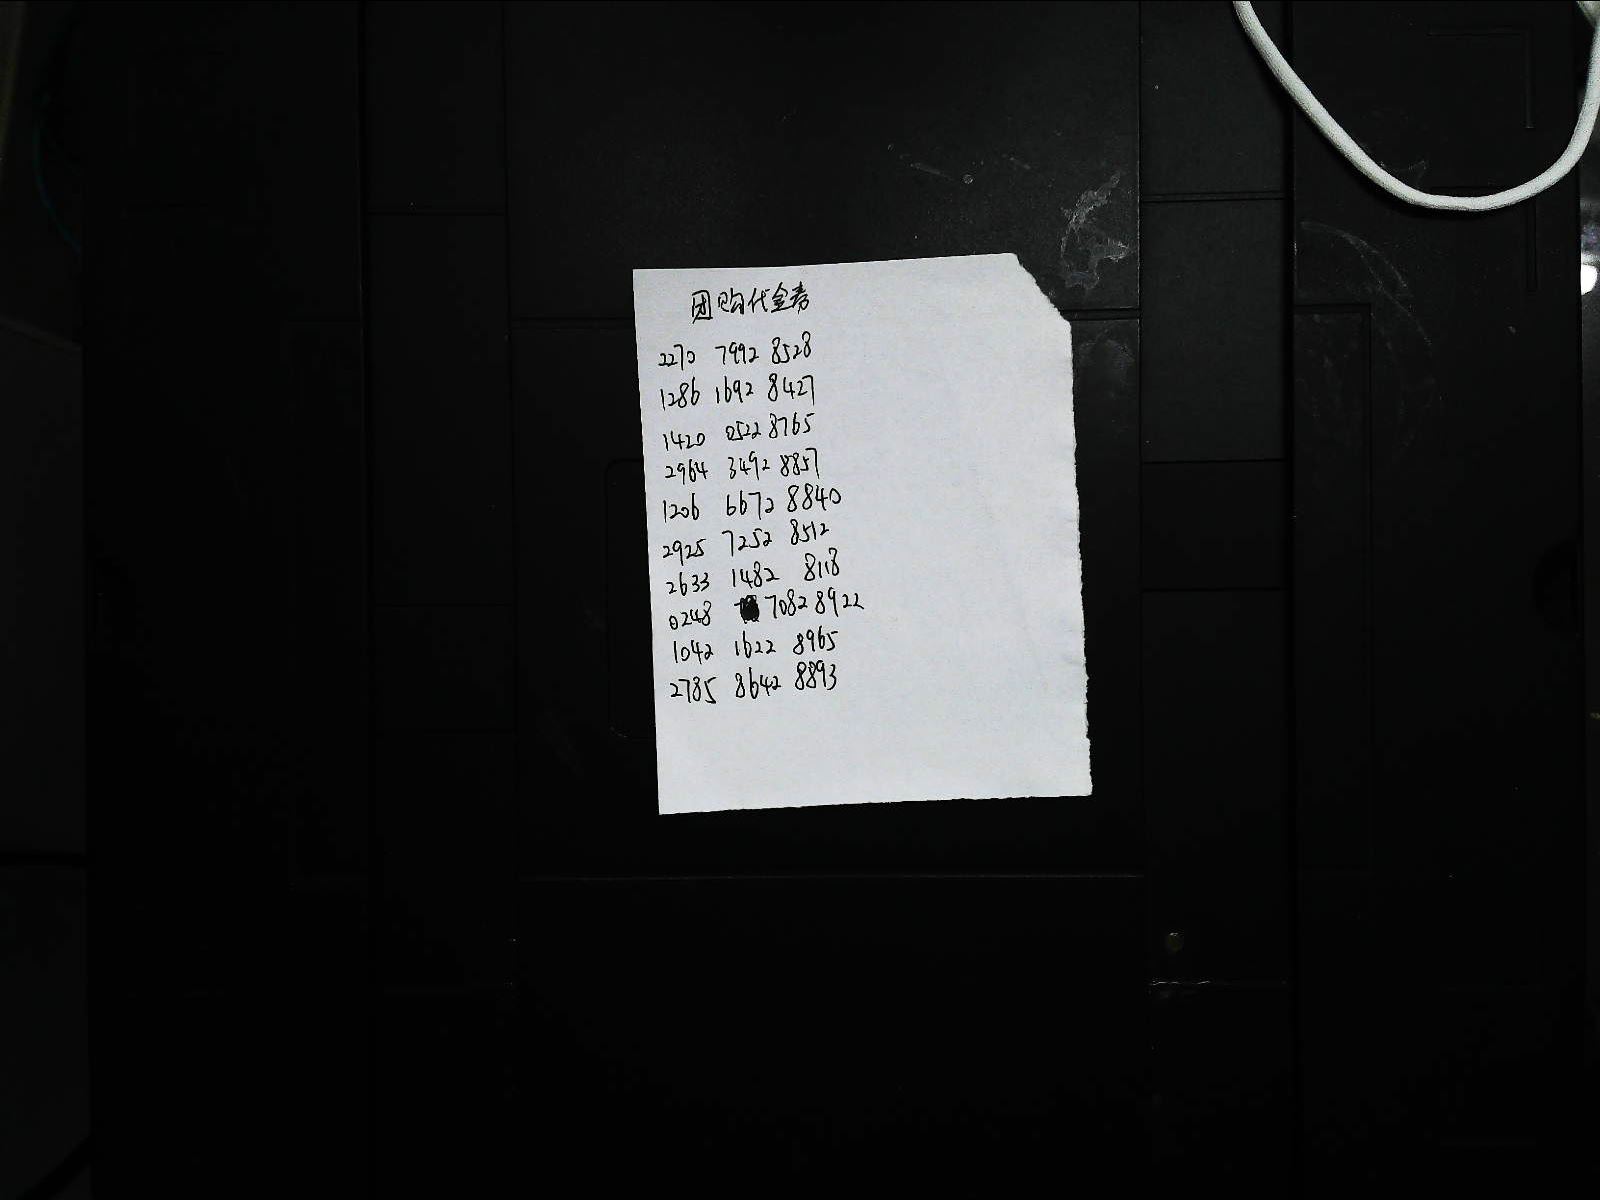 团购代金券
2270 7992 8528
1286 1692 8427
1420 0522 8765
2964 3492 8857
1206 6672 8840
2925 7252 8512
2633 1482 8118
0248 7082 8922
1042 1622 8965
2785 8642 8893